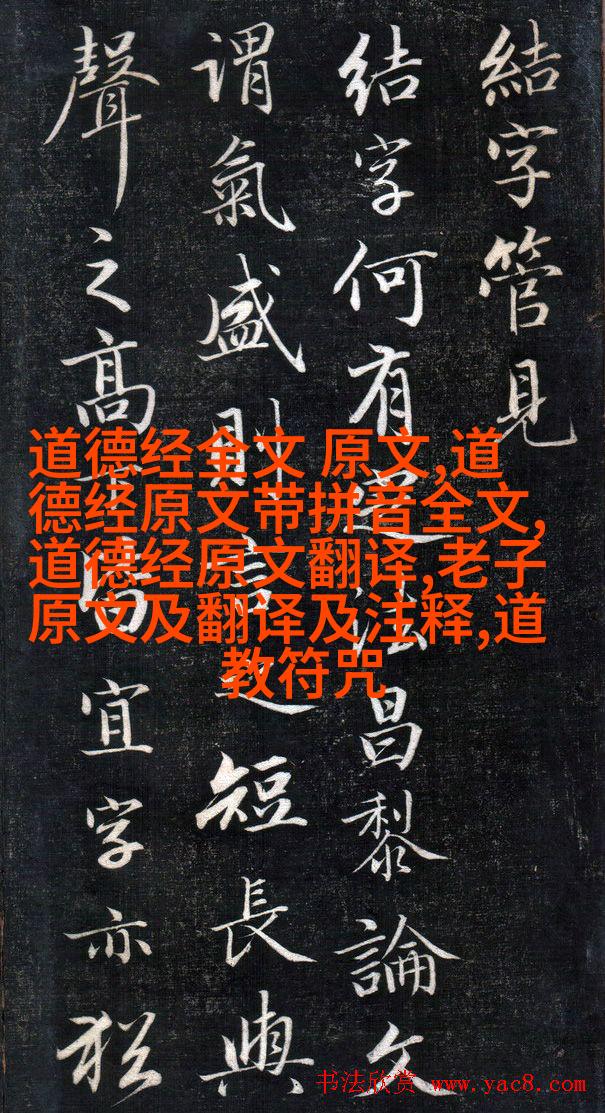 結字管見
結字何有道法昌黎論文
謂氣盛則言之短長與
聲之高下皆宜字亦猶
道德经全文 原文,道
德经原文带拼音全文,
道德经原文翻译,老子
原文及翻译及注释,道
教符咒
书法欣赏 www.yac8.com